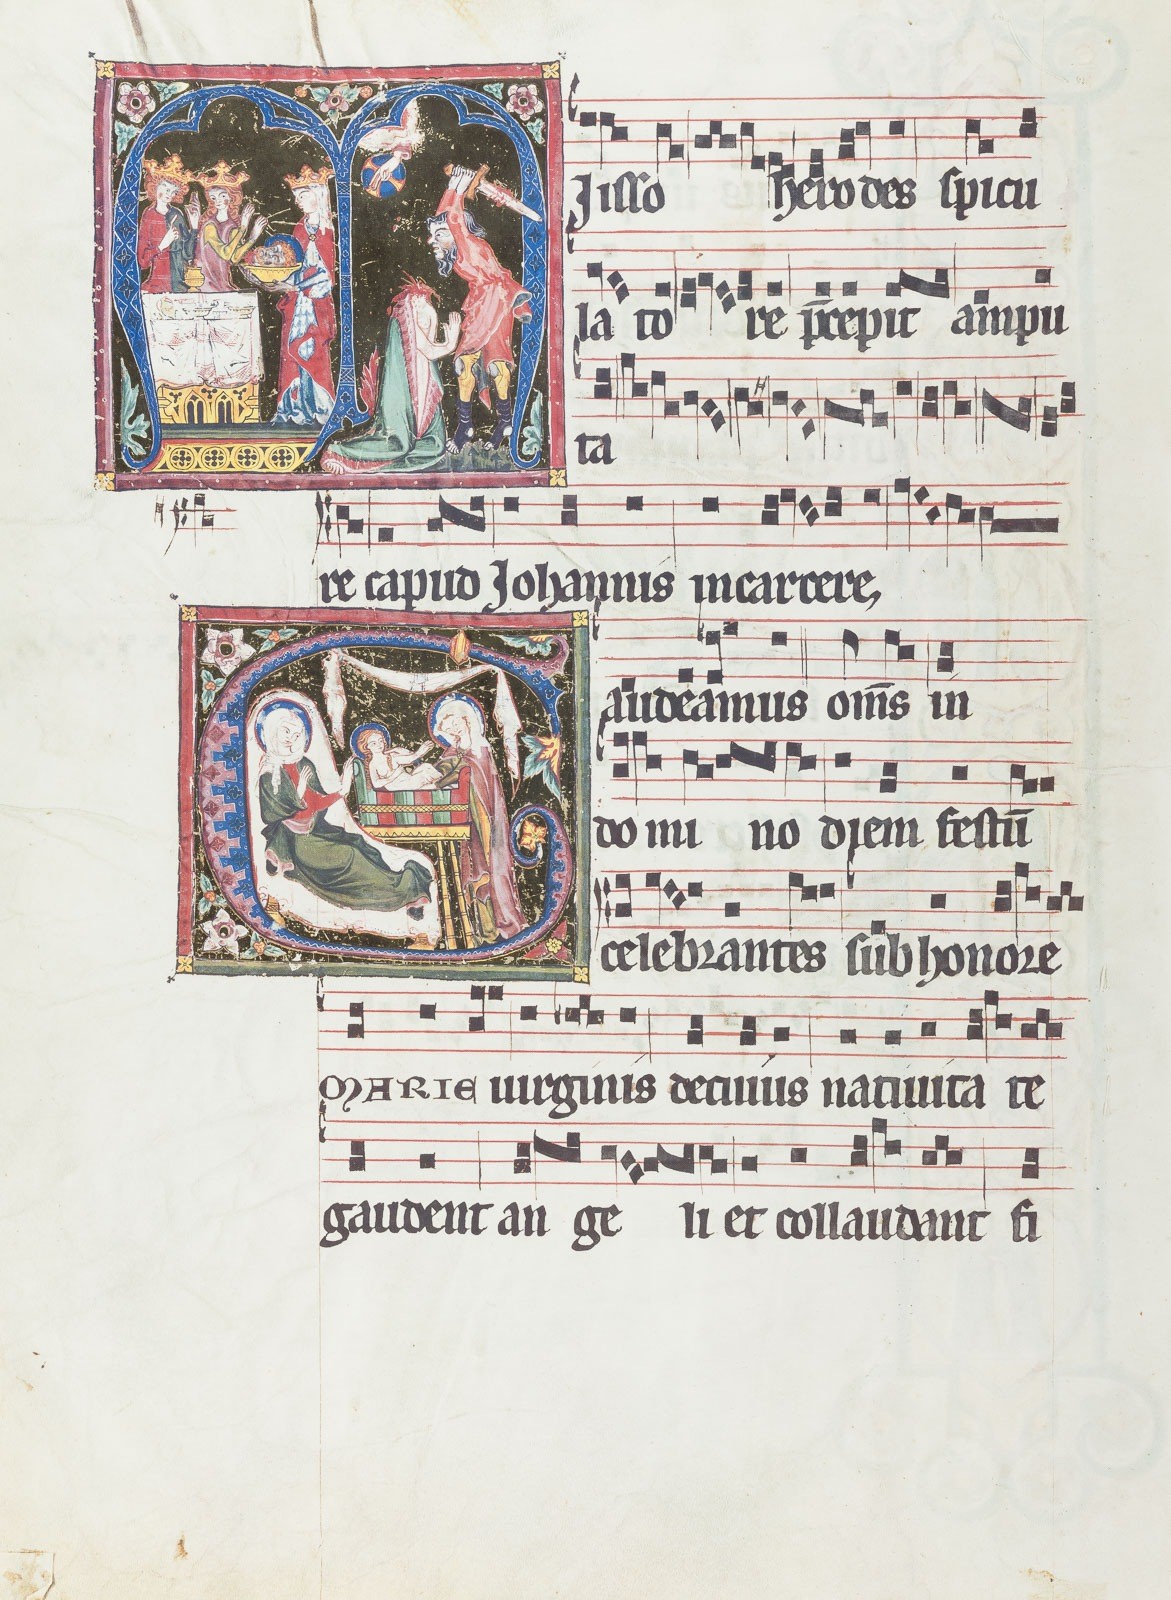 Misso herodes spicu
la to re p̄cepit ampu
ta
re capud Johannis in carcere,
Gaudeamus om̄s in
do mi no diem festū
celebrantes sub honore
MARIE uirginis de cuius natiuita te
gaudent an ge li et collaudant fi